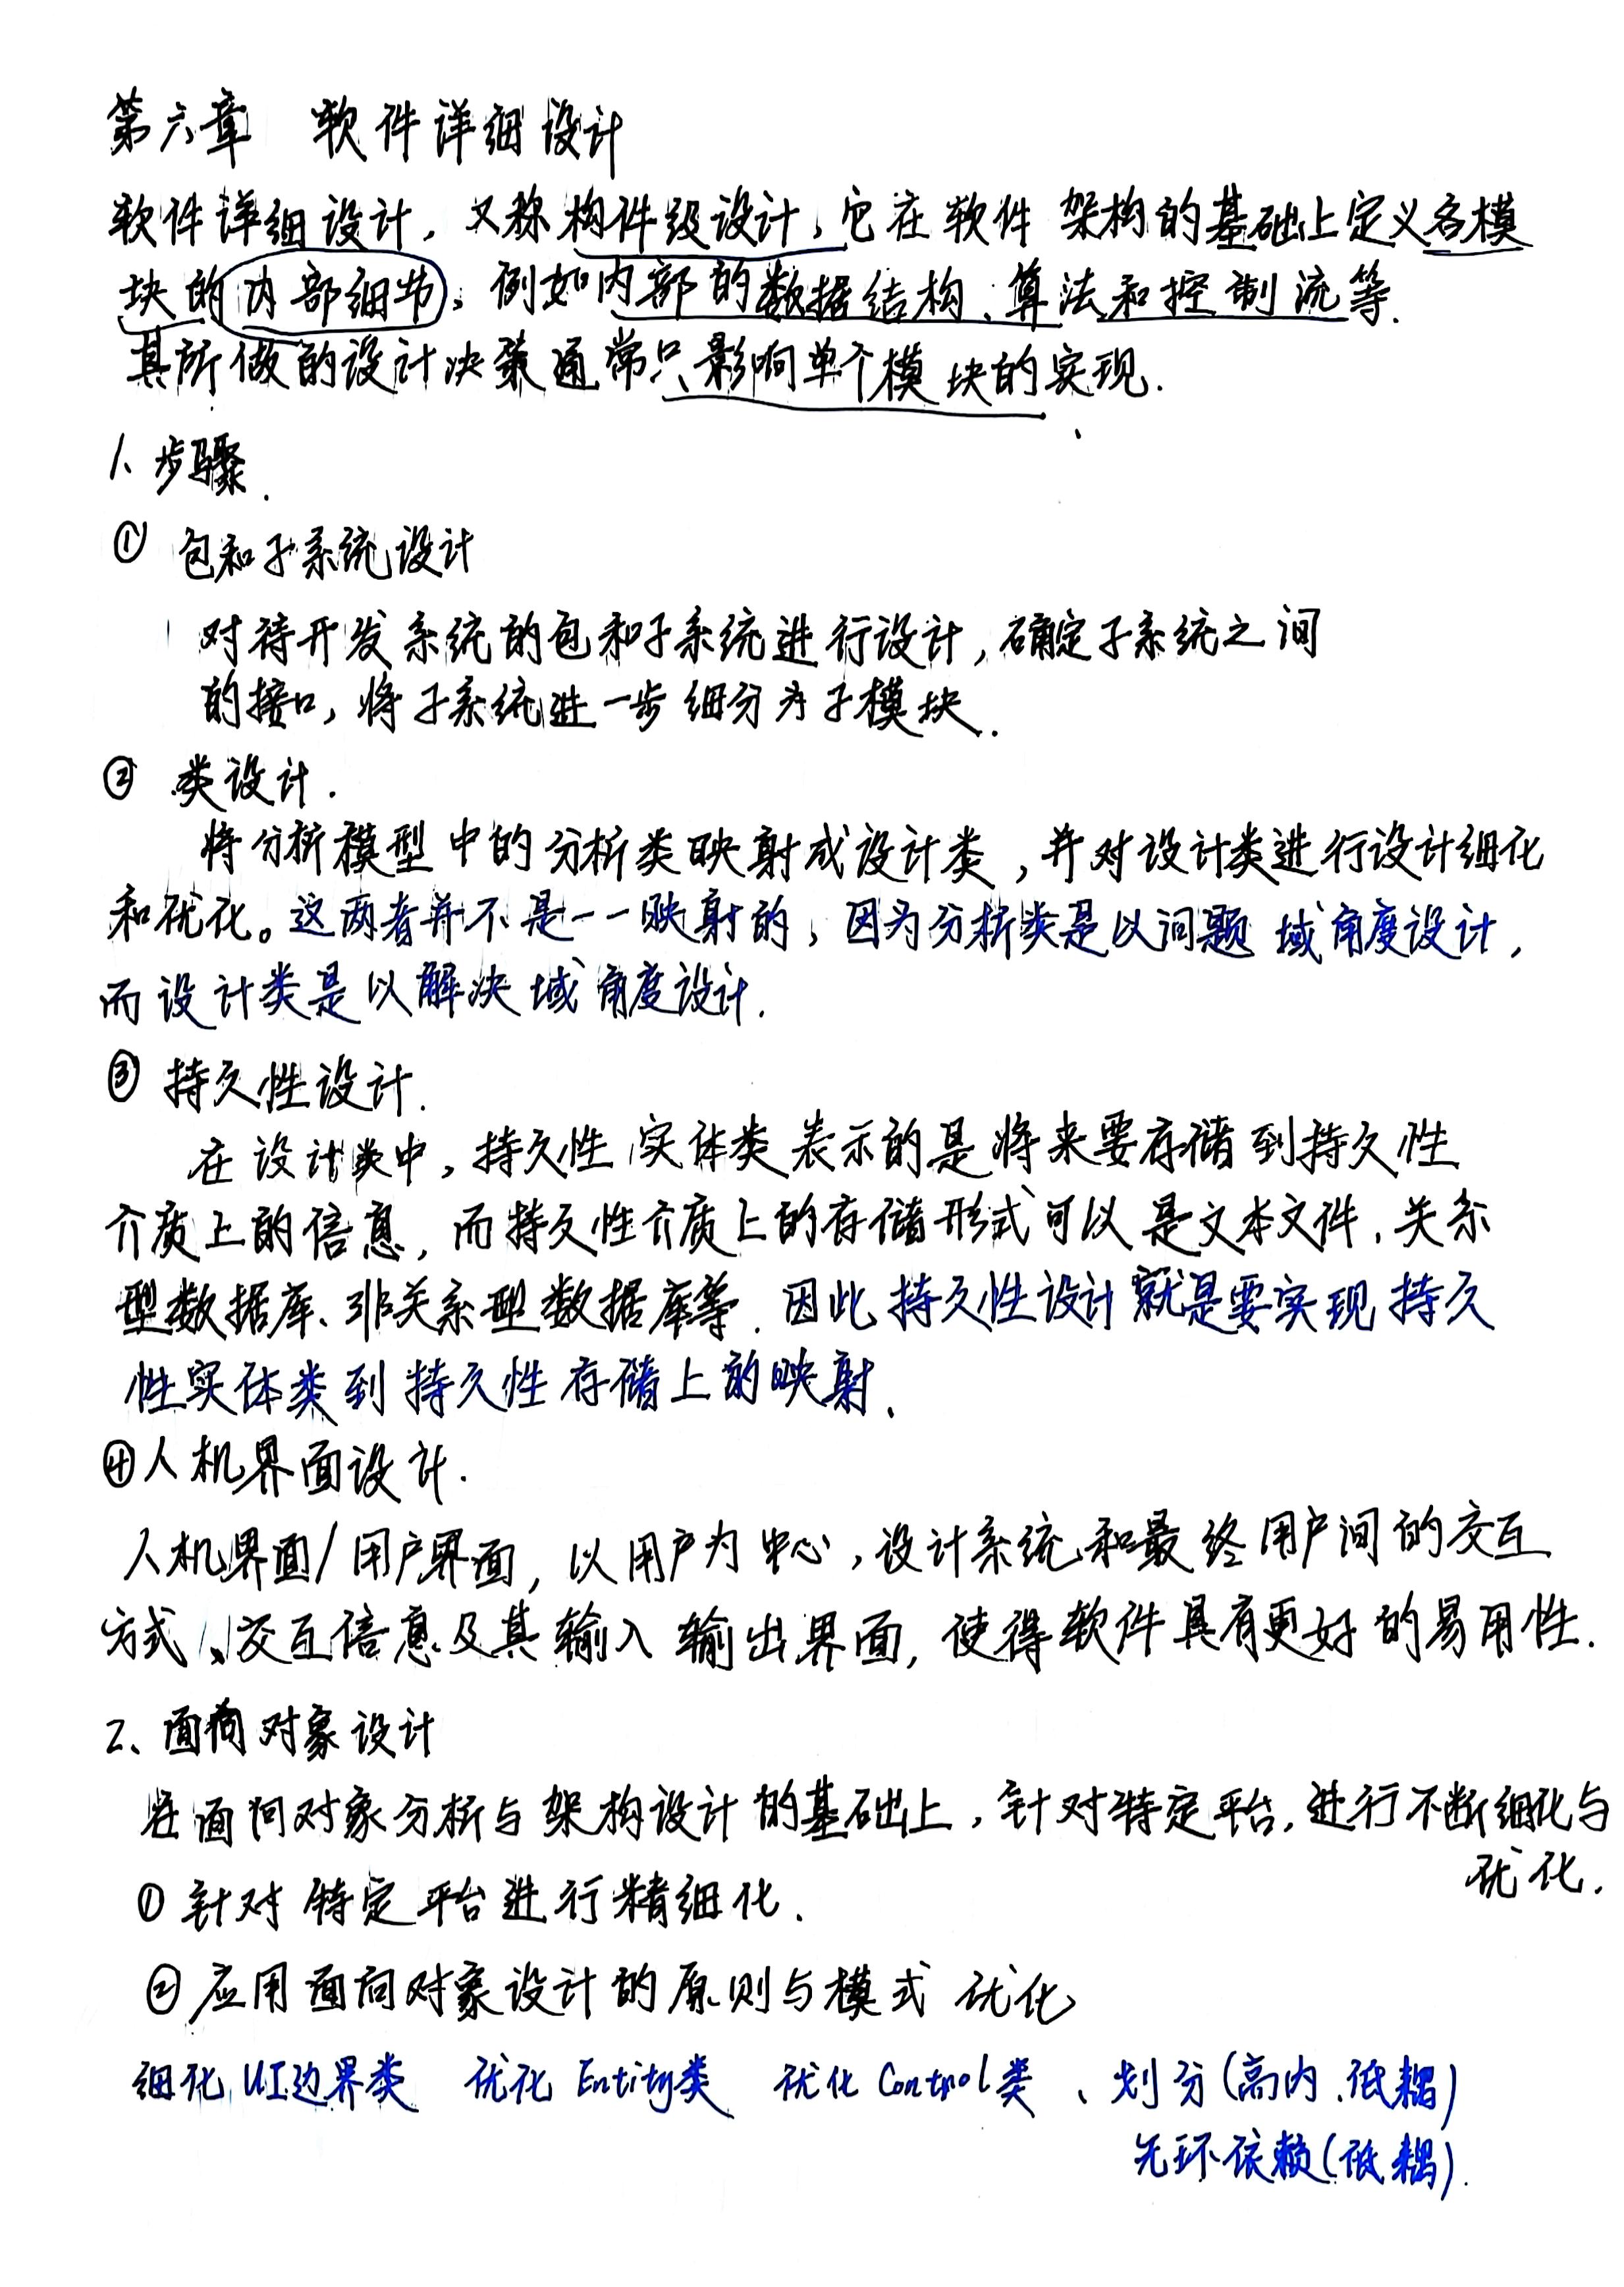 第六章 软件详细设计
软件详细设计，又称构件级设计，它在软件架构的基础上定义各模
块的内部细节，例如内部的数据结构、算法和控制流等.
其所做的设计决策通常只影响单个模块的实现.
1、步骤.
① 包和子系统设计
对待开发系统的包和子系统进行设计，确定子系统之间
的接口，将子系统进一步细分为子模块.
② 类设计.
将分析模型中的分析类映射成设计类，并对设计类进行设计细化
和优化。这两者并不是一一映射的，因为分析类是以问题域角度设计，
而设计类是以解决域角度设计.
③ 持久性设计.
在设计类中，持久性实体类表示的是将来要存储到持久性
介质上的信息，而持久性介质上的存储形式可以是文本文件、关系
型数据库、非关系型数据库等.因此持久性设计就是要实现持久
性实体类到持久性存储上的映射.
④人机界面设计.
人机界面/用户界面，以用户为中心，设计系统和最终用户间的交互
方式、交互信息及其输入输出界面，使得软件具有更好的易用性.
2、面向对象设计
在面向对象分析与架构设计的基础上，针对特定平台，进行不断细化与
优化.
①针对特定平台进行精细化.
②应用面向对象设计的原则与模式优化
细化UI边界类 优化Entity类 优化Control类、划分(高内.低耦)
无环依赖(低耦).